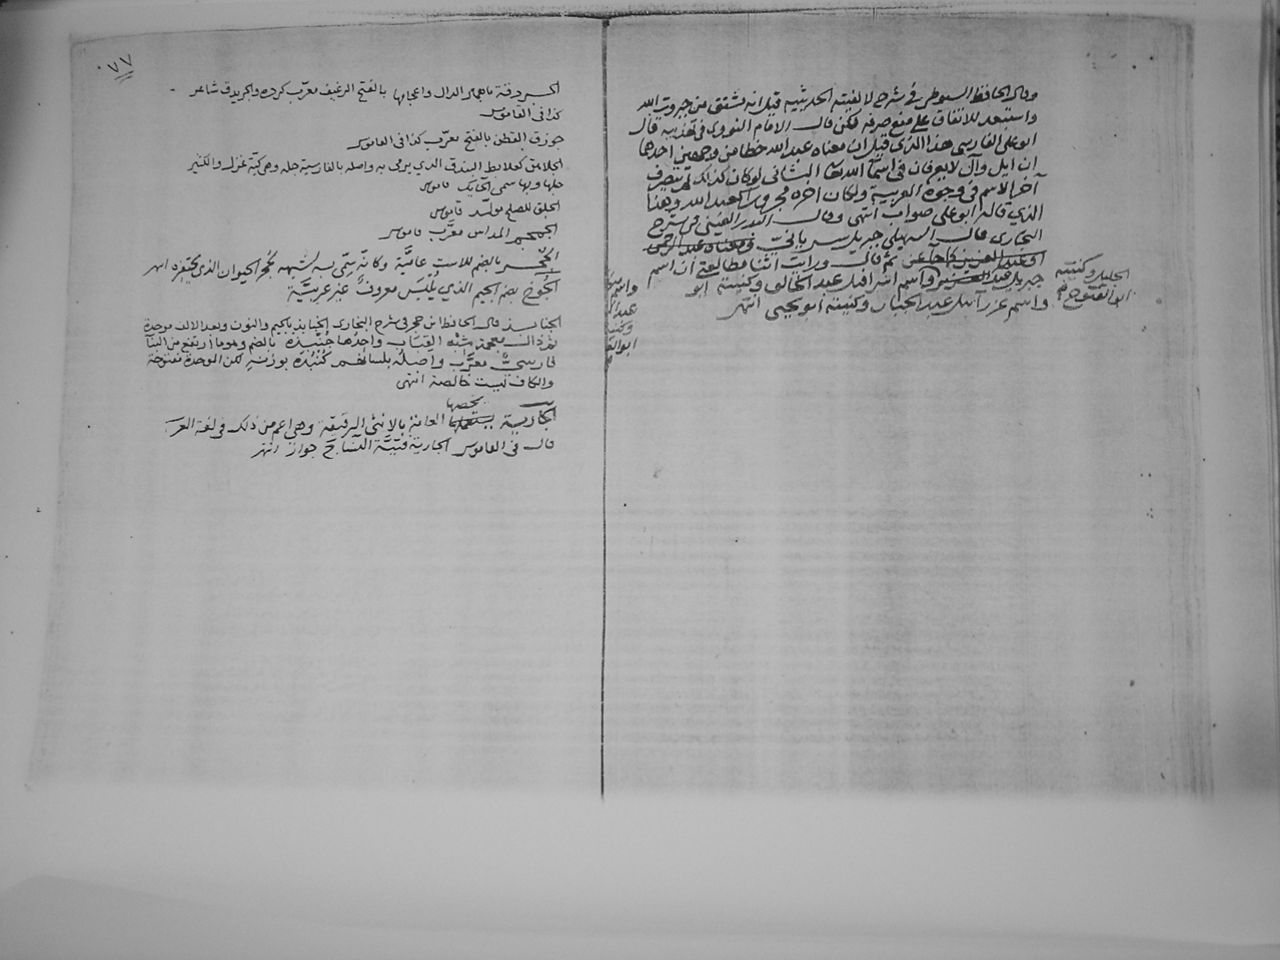 وقال الحافظ السيوطي في شرح لالفيته الحديثيه قيل انه مشتق من جبروت الله
واستبعد للاتفاق على منع صرفه لكن قال الامام النووي في تهذيبه قال
ابو على الفارسى هذا الذى قيل ان معناه عبد الله خطا من وجهين احدهما
ان ايل وآل لا يعرفان في اسمآ الله تعا الثانى لو كان كذلك لم يتصرف
آخر الاسم في وجوه العربية ولكان اخره مجرورا كعبد الله وهذا
الذي قاله ابو على صواب انتهى وقال البدر العينى في شرح
البخارى قال السهيلى جبريل سريانى ومعناه عبد الرحمن
او عبد العزيز كما جا عن ثم قال ورايت اثنا مطالعتى ان اسم
جبريل عبد الجليل وكنيته ابو الفتوح
واسم اسرافيل عبد الخالق وكنيته ابو
واسم عزرائيل عبد الجبار وكنيته ابو يحيى انتهى
٠٧٧
الجردقة باهمال الدال واعجامها بالفتح الرغيف معرّب كرده والجريدق شاعر
كذا في القاموس
جوزق القطن بالفتح معرّب كذا في القاموس
الجلاهق كعلابط البندق الذي يرمى به واصله بالفارسية جله وهى كبّة غزل والكثير
جلها وبها سمى الحايك قاموس
الجلق للصلح مولّد قاموس
الجمجم المداس معرّب قاموس
الجُحْر بالضم للاست عاميّة وكانّه سمّى به لشبهه بجُحر الحيوان الذى يحتفره انتهى
الجُوخ بضم الجيم الذي يُلبَس معروفٌ غير عربيّة
الجنابذ قال الحافظ ابن حجر في شرح البخارى الجنابذ بالجيم والنون وبعد الالف موحدة
ثم ذال معجمة شبْه القِبَاب واحدها جُنْبُذة بالضم وهو ما ارتفع من البنآ
فارسىٌّ معرّب واصلُه بلسانهم كُنْبُذَة بوزنه لكن الموحدة مفتوحة
والكاف ليست خالصة انتهى
الجارية يخصها العامة بالانثى الرقيقة وهى اعم من ذلك في لغة العرب
قال في القاموس الجارية فتيّة النسآ ج جوار انتهى